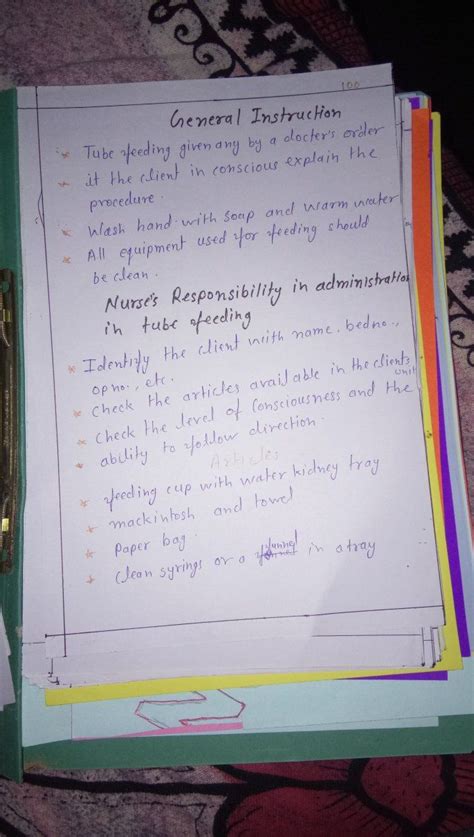 100
General Instruction
* Tube feeding given any by a docter's order
* it the client in conscious explain the
procedure.
* Wash hand with soap and warm water
* All equipment used for feeding should
be clean.
Nurse's Responsibility in administration
in tube feeding
* Identify the client with name, bedno.,
opno., etc.
* Check the articles available in the client's
unit
* Check the level of Consciousness and the
* ability to follow direction.
Articles
* feeding cup with water kidney tray
* mackintosh and towel
* Paper bag.
* Clean syrings or a funnel in a tray